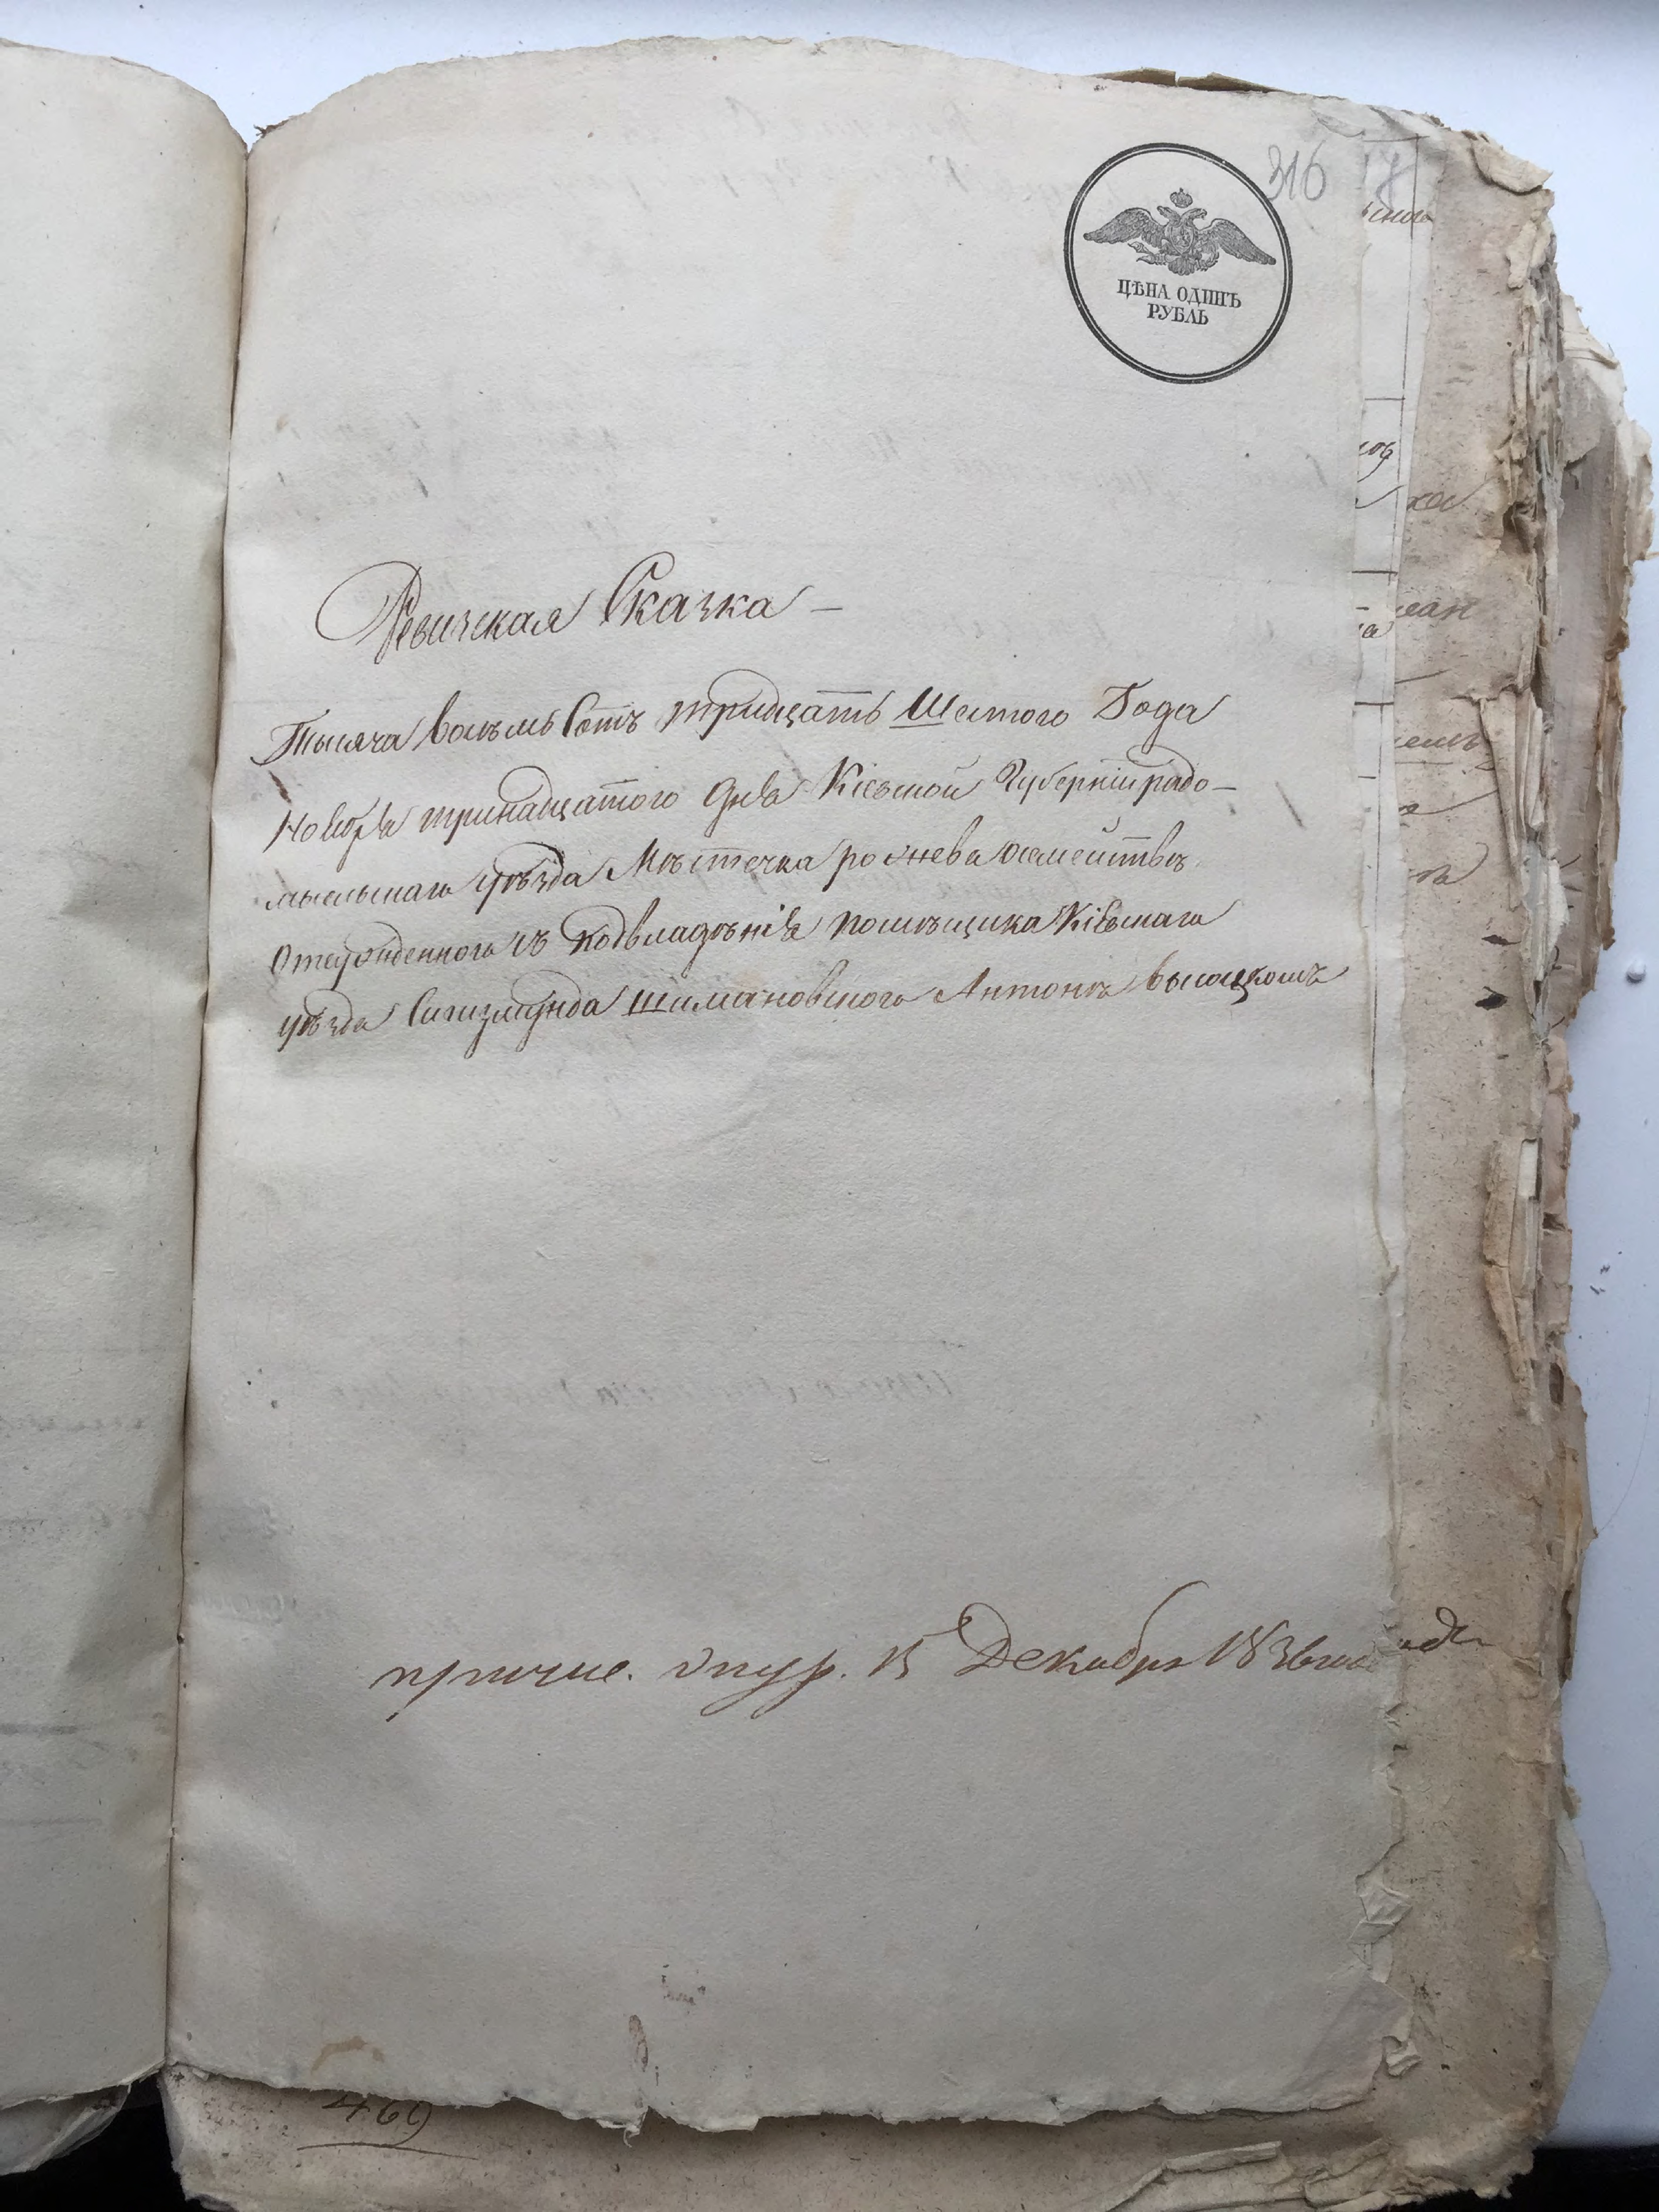 316
ЦѢНА ОДИНЪ
РУБЛЬ
Ревизская Сказка —
Тысяча восѣмь Сотъ тридцать Шестого Года
Ноября тринадцатого Дня Кіевской Губерніи радо-
мысльскаго уѣзда Мѣстечка рожнева
отсужденного съ подвладѣнія помѣщика Кіевскаго
уѣзда Сигизмунда Шимановского Антонѣ высоцкомъ
15 Декабря 1836
469